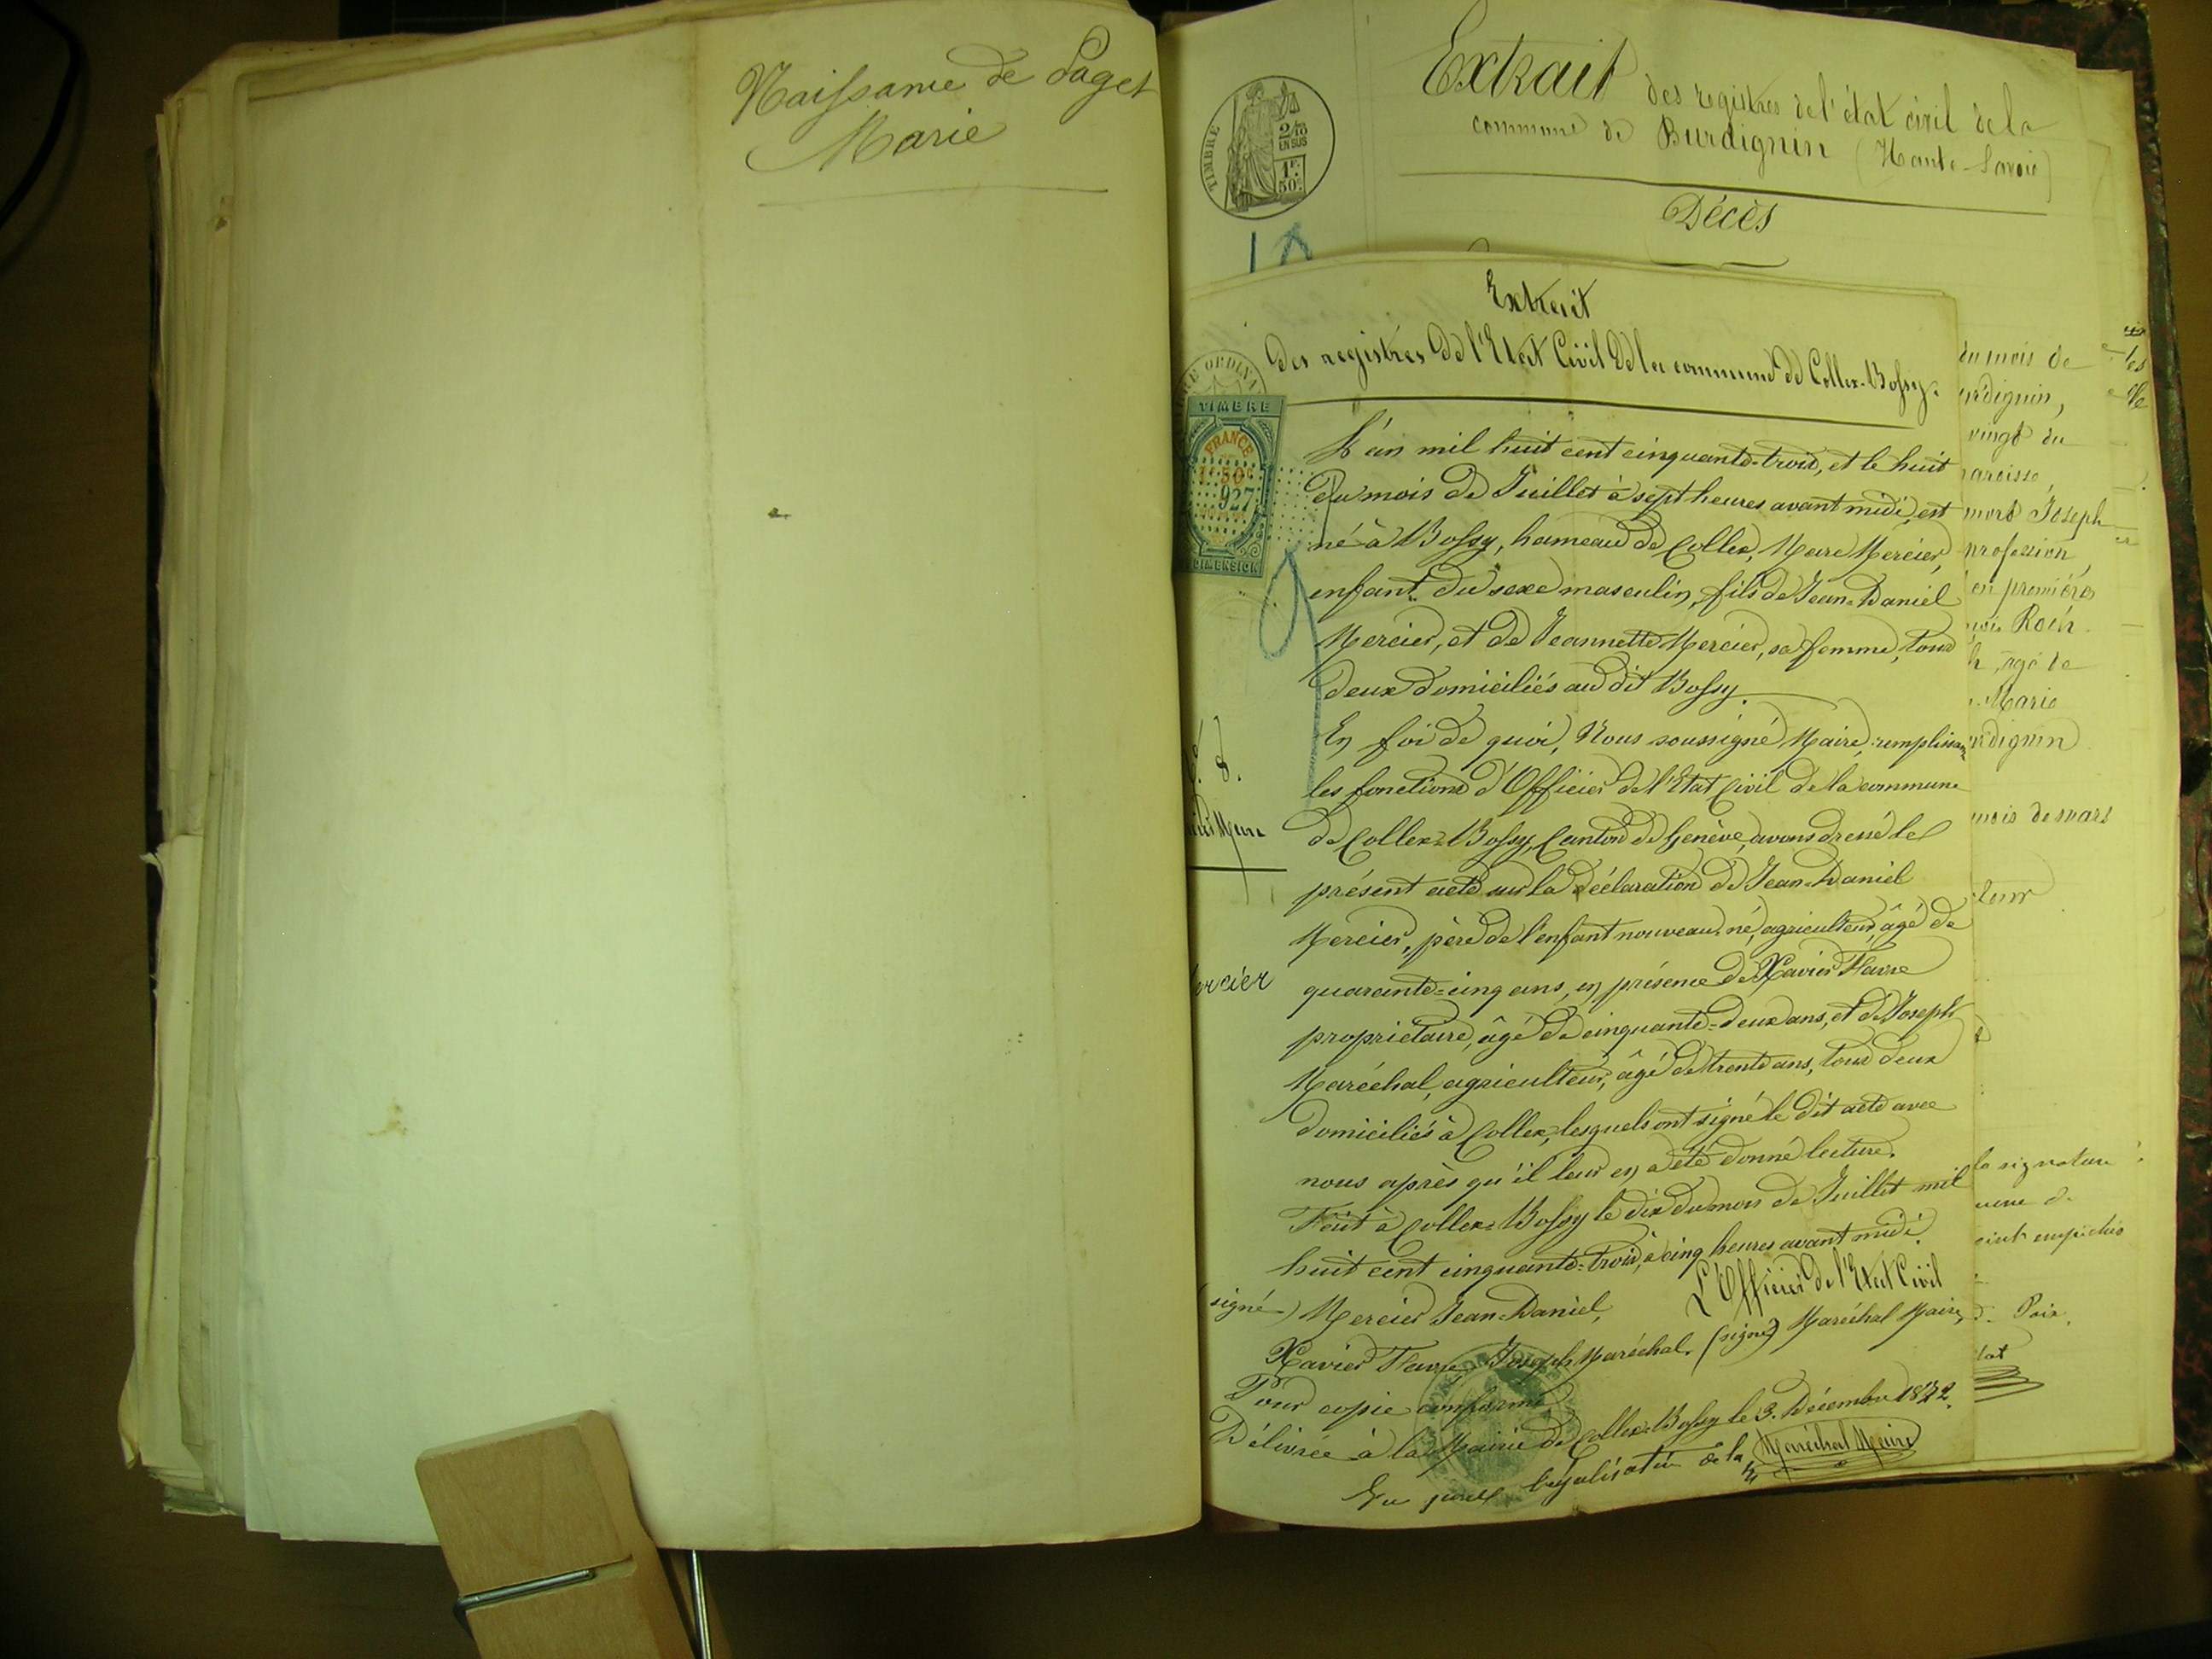 Naissance de Paget
Marie
Extrait des registres de l'état civil de la
commune de Burdignin (Haute-Savoie)
Décès
TIMBRE
2/10
EN SUS
1F.
50c.
Extrait
des registres de l'Etat Civil de la commune de Collex-Bossy.
TIMBRE
FRANCE
1F 50c
927
DIMENSION
L'an mil huit cent cinquante-trois, et le huit
du mois de Juillet à sept heures avant midi, est
né à Bossy, hameau de Collex, Marc Mercier,
enfant du sexe masculin, fils de Jean-Daniel
Mercier, et de Jeannette Mercier, sa femme, tous
deux domiciliés au dit Bossy.
En foi de quoi, Nous soussigné Maire, remplissant
les fonctions d'Officier de l'Etat Civil de la commune
de Collex-Bossy, Canton de Genève, avons dressé le
présent acte sur la déclaration de Jean-Daniel
Mercier, père de l'enfant nouveau-né, agriculteur, âgé de
quarante-cinq ans, en présence de Xavier Favre
propriétaire, âgé de cinquante-deux ans, et de Joseph
Maréchal, agriculteur, âgé de trente ans, tous deux
domiciliés à Collex, lesquels ont signé le dit acte avec
nous après qu'il leur en a été donné lecture.
Fait à Collex-Bossy le dix du mois de Juillet mil
huit cent cinquante-trois, à cinq heures avant midi.
L'Officier de l'Etat Civil
(signé) Mercier Jean-Daniel,
Xavier Favre, Joseph Maréchal. (signé) Maréchal Maire
Pour copie conforme
Délivrée à la Mairie de Collex-Bossy le 3. Décembre 1872.
Maréchal Maire
Vu pour légalisation de la
du mois de
urdignin,
vingt du
paroisse
mort Joseph
profession
en premières
Roch
âgé de
Marie
urdignin
mois de mars
la signature